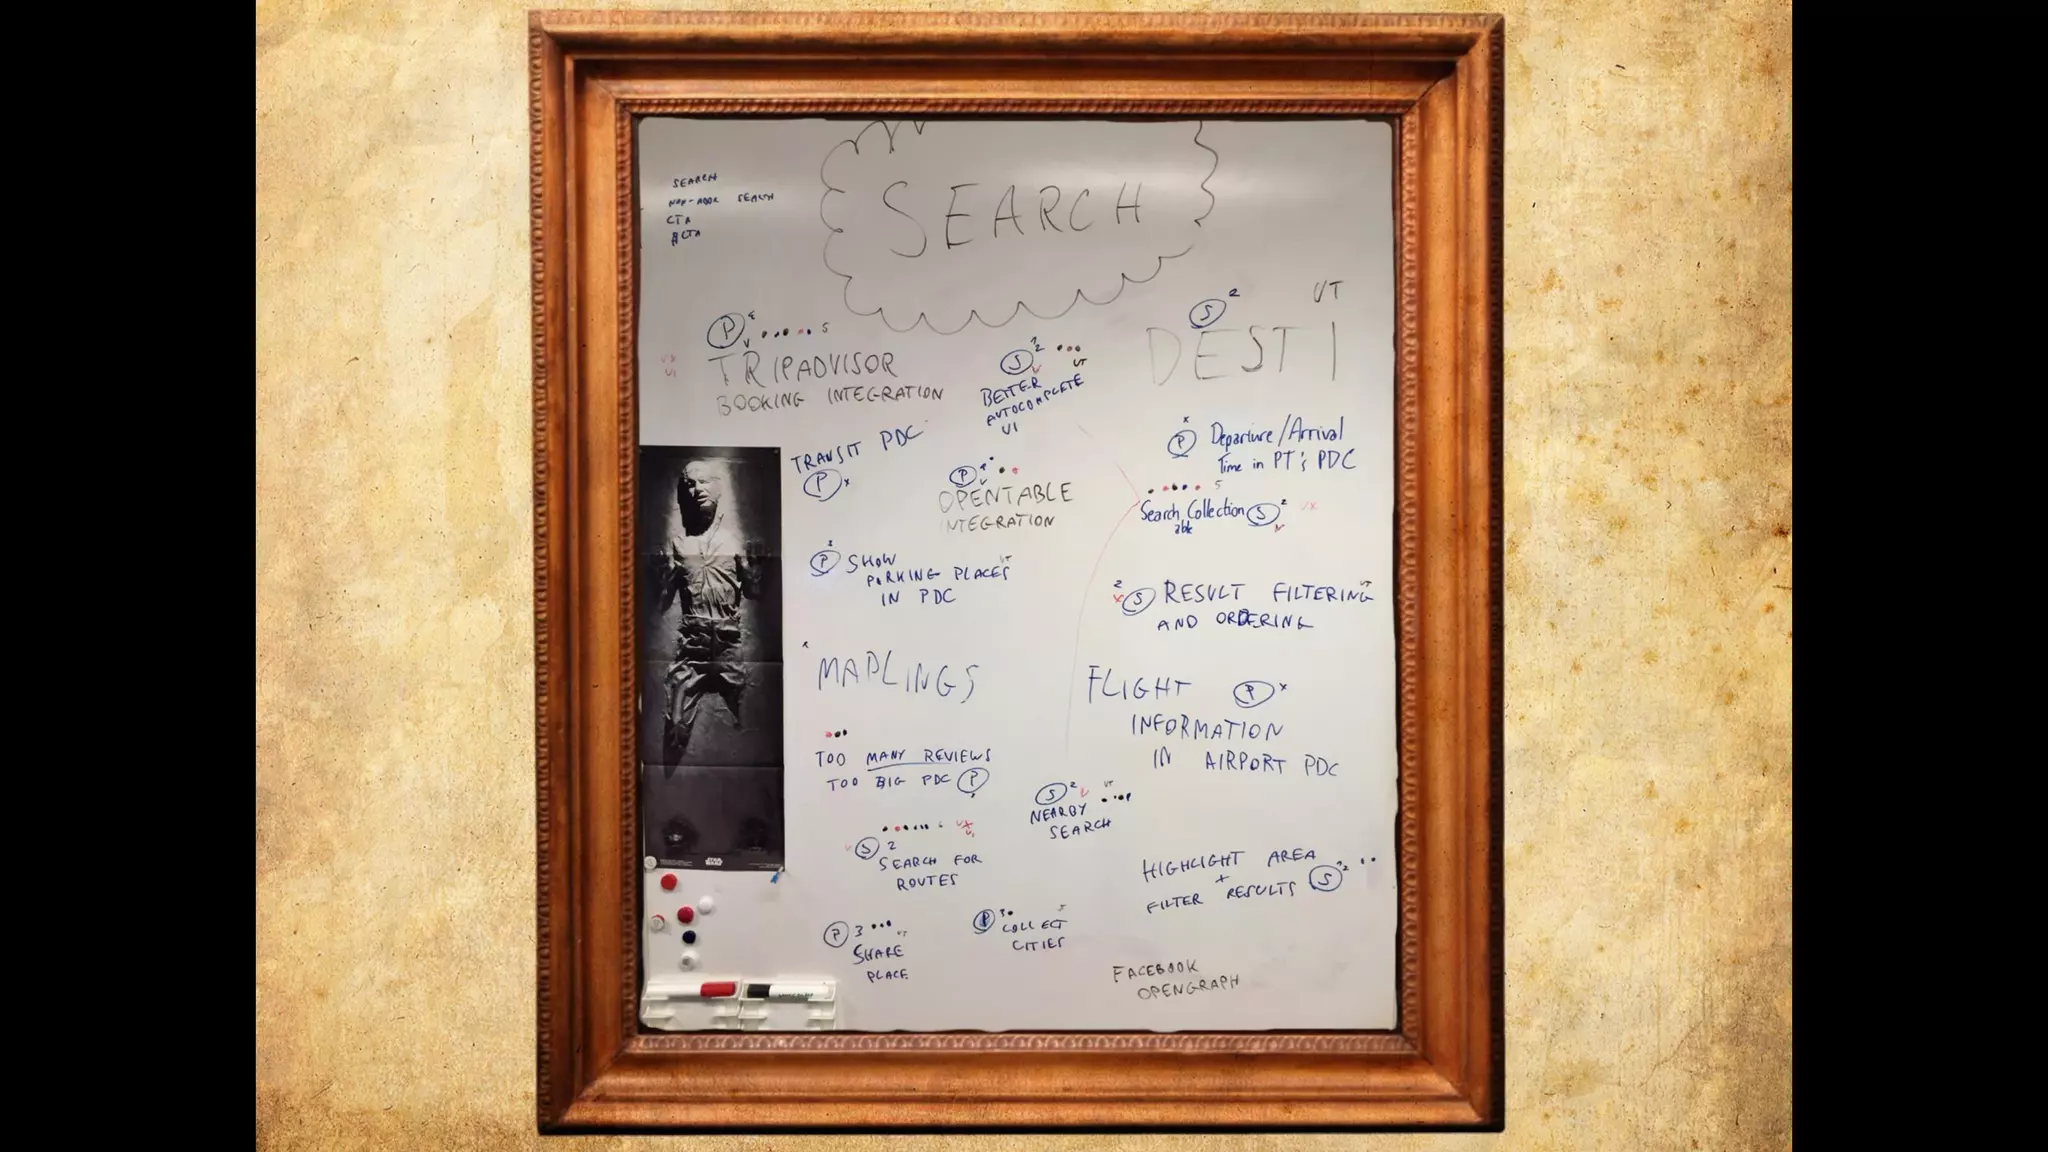 SEARCH
SEARCH
NON-ADDR SEARCH
CTA
ACTA
S 2 UT
DESTI
P 5
TRIPADVISOR
BOOKING INTEGRATION
S 2
UT
BETTER
AUTOCOMPLETE
UI
TRANSIT PDC
P x
P
OPENTABLE
INTEGRATION
P Departure/Arrival
Time in PT's PDC
5
Search Collection S 2
able
P SHOW
PARKING PLACES UT
IN PDC
2
S RESULT FILTERING UT
AND ORDERING
MAPLINGS
FLIGHT P x
INFORMATION
IN AIRPORT PDC
TOO MANY REVIEWS
TOO BIG PDC P
S 2 UT
NEARBY
SEARCH
6
S 2
SEARCH FOR
ROUTES
HIGHLIGHT AREA
+
FILTER RESULTS S 2
P 3 UT
SHARE
PLACE
P 3 S
COLLECT
CITIES
FACEBOOK
OPENGRAPH
STAR WARS